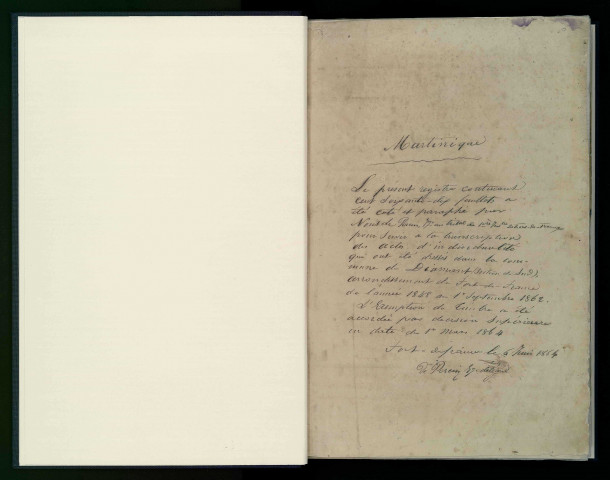 Martinique
Le présent registre contenant
cent soixante-dix feuillets a
été coté et paraphé par
Nous
pour servir à la transcription
des actes d'individualité
qui ont été dressés dans la com-
mune du Diamant
arrondissement de Fort-de-France
de l'année 1848 au 1er Septembre 1862.
L'Exemption du timbre a été
accordée par décision supérieure
en date du 1er Mars 1864
Fort-de-france le 5 1864